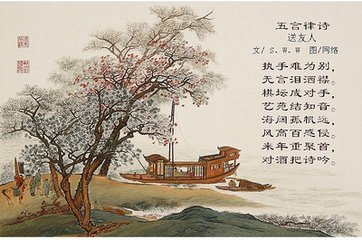 五言律诗
送友人
文/S、W、W 图/网络
执手难为别，
无言泪洒襟。
棋坛成对手，
艺苑结知音。
海阔孤帆远，
风高百感侵。
来年重聚首，
对酒把诗吟。